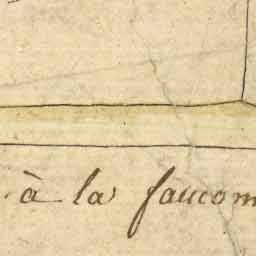 à la faucom